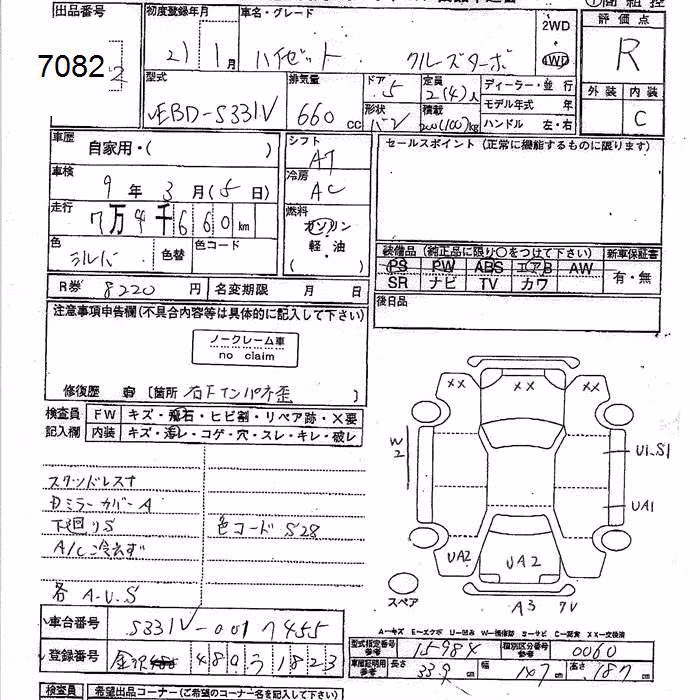 出品番号
7082
初度登録年月
21 1月
車名・グレード
ハイゼット クルーズターボ
2WD
4WD
評価点
R
外装 内装
C
型式
EBD-S331V
排気量
660 cc
ドア 5
形状 バン
定員
2(4)人
積載
200(100)kg
ディーラー・並行
モデル年式 年
ハンドル 左・右
車歴
自家用・( )
車検
9年3月(5日)
走行
7万4千660km
色
シルバー
色替
色コード
シフト
AT
冷房
AC
燃料
ガソリン
軽油
( ・ )
セールスポイント (正常に機能するものに限ります)
装備品 (純正品に限り○をつけて下さい)
新車保証書
PS PW ABS エアB AW
SR ナビ TV カワ
有・無
後日品
R券 8220円
名変期限 月 日
注意事項申告欄(不具合内容等は具体的に記入して下さい)
ノークレーム車
no claim
修復歴 有 〔箇所 右Fインパネ歪 〕
検査員
記入欄
FW キズ・飛石・ヒビ割・リペア跡・X要
内装 キズ・汚レ・コゲ・穴・スレ・キレ・破レ
スタッドレスナ
Dミラーカバー A
下廻りS
A/C冷えず
各 A.U.S
色コード S28
XX XX XX
W2
U1.S1
UA1
UA2
UA2
A3
スペア
A-キズ E-エクボ U-凹み W-補修跡 S-サビ C-腐蝕 XX-交換済
車台番号
S331V-0017455
登録番号
金沢 480 う 1823
型式指定番号
参考
15984
種別区分番号
参考
0060
車庫証明用
参考
長さ 339cm
幅 147
高さ 187
検査員
希望出品コーナー(ご希望のコーナー名を記入して下さい)